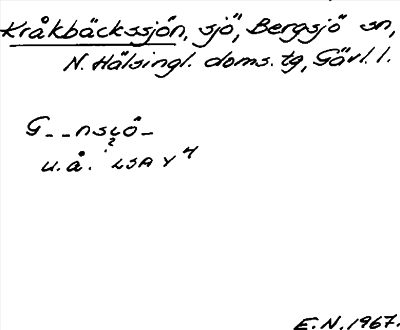 Kråkbäckssjön, sjö, Bergsjö sn,
N. Hälsingl. doms. tg, Gävl. l.
G--nsçö-
u.å. LSA Y 4
E.N. 1967.